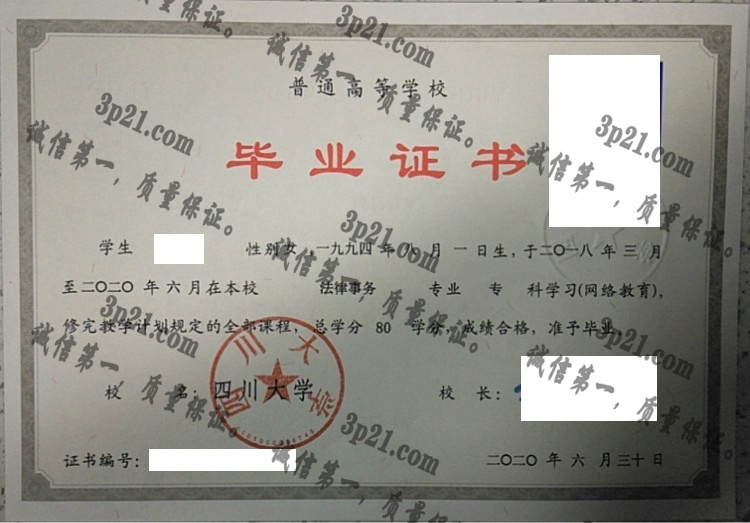 普通高等学校
毕业证书
学生 性别女 一九九四年八月一日生，于二〇一八年三月
至二〇二〇年六月在本校 法律事务 专业 专 科学习(网络教育)，
修完教学计划规定的全部课程，总学分 80 学分，成绩合格，准予毕业
校 名：四川大学 校 长：
证书编号： 二〇二〇年六月三十日
四川大学
3p21.com
诚信第一，质量保证。
3p21.com
诚信第一，质量保证。
3p21.com
诚信第一，质量保证。
3p21.com
诚信第一，质量保证。
3p21.com
诚信第一，质量保证。
3p21.com
诚信第一，质量保证。
3p21.com
诚信第一，质量保证。
3p21.com
诚信第一，质量保证。